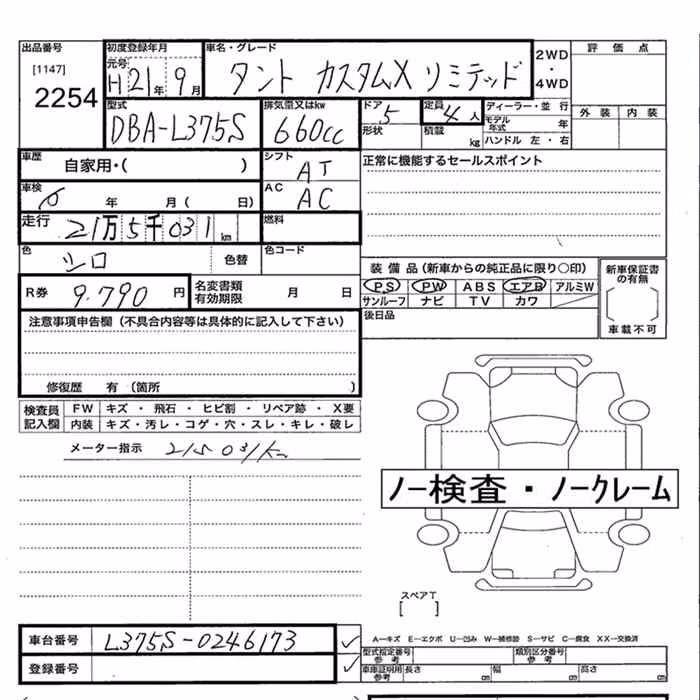 出品番号 初度登録年月 車名・グレード 2WD・4WD 評価点
[1147] 2254 元号 H21年9月 タント カスタムX リミテッド
外装 内装
型式 DBA-L375S 排気量又はkw 660cc ドア 5 定員 4人 ディーラー・並行
形状 積載 kg モデル年式 年
ハンドル 左・右
車歴 自家用・( ) シフト AT 正常に機能するセールスポイント
車検 年 月( 日) AC AC
走行 21万5千031km 燃料
色 シロ 色替 色コード
装備品(新車からの純正品に限り○印) 新車保証書の有無
PS PW ABS エアB アルミW
サンルーフ ナビ TV カワ
R券 9.790円 名変書類有効期限 月 日
後日品 車載不可
注意事項申告欄(不具合内容等は具体的に記入して下さい)
修復歴 有(箇所 )
検査員記入欄 FW キズ・飛石・ヒビ割・リペア跡・X要
内装 キズ・汚レ・コゲ・穴・スレ・キレ・破レ
メーター指示 215031km
ノー検査・ノークレーム
スペアT
[ ]
車台番号 L375S-0246173 ✓
A―キズ E―エクボ U―凹み W―補修跡 S―サビ C―腐食 XX―交換済
登録番号 ✓
型式指定番号参考 類別区分番号参考
車庫証明用参考 長さ cm 幅 cm 高さ cm